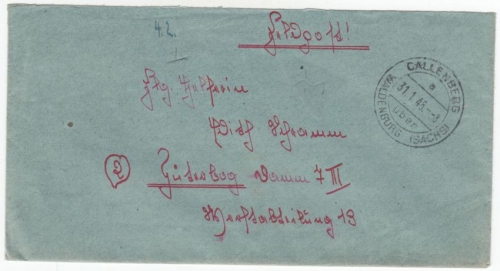 4.2.
Feldpost!
CALLENBERG
a
31.1.45.-8
über
WALDENBURG (SACHS)
Flg. Helferin
Edith Schramm
2
Jüterbog Damm 7 III
Werftabteilung 13